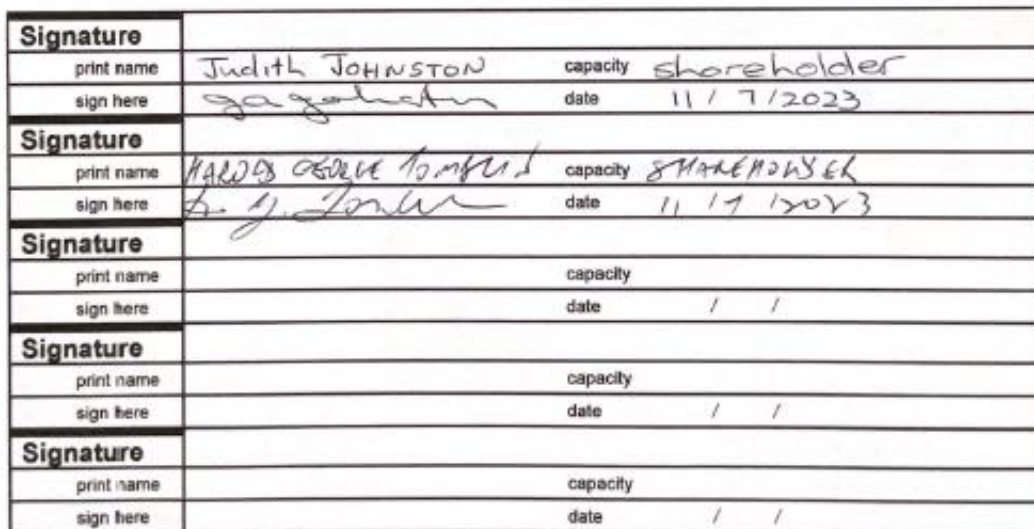 Signature
print name Judith JOHNSTON capacity shareholder
sign here date 11 / 7 / 2023
Signature
print name HAROLD GEORGE capacity SHAREHOLDER
sign here date 11 / 7 / 2023
Signature
print name capacity
sign here date / /
Signature
print name capacity
sign here date / /
Signature
print name capacity
sign here date / /